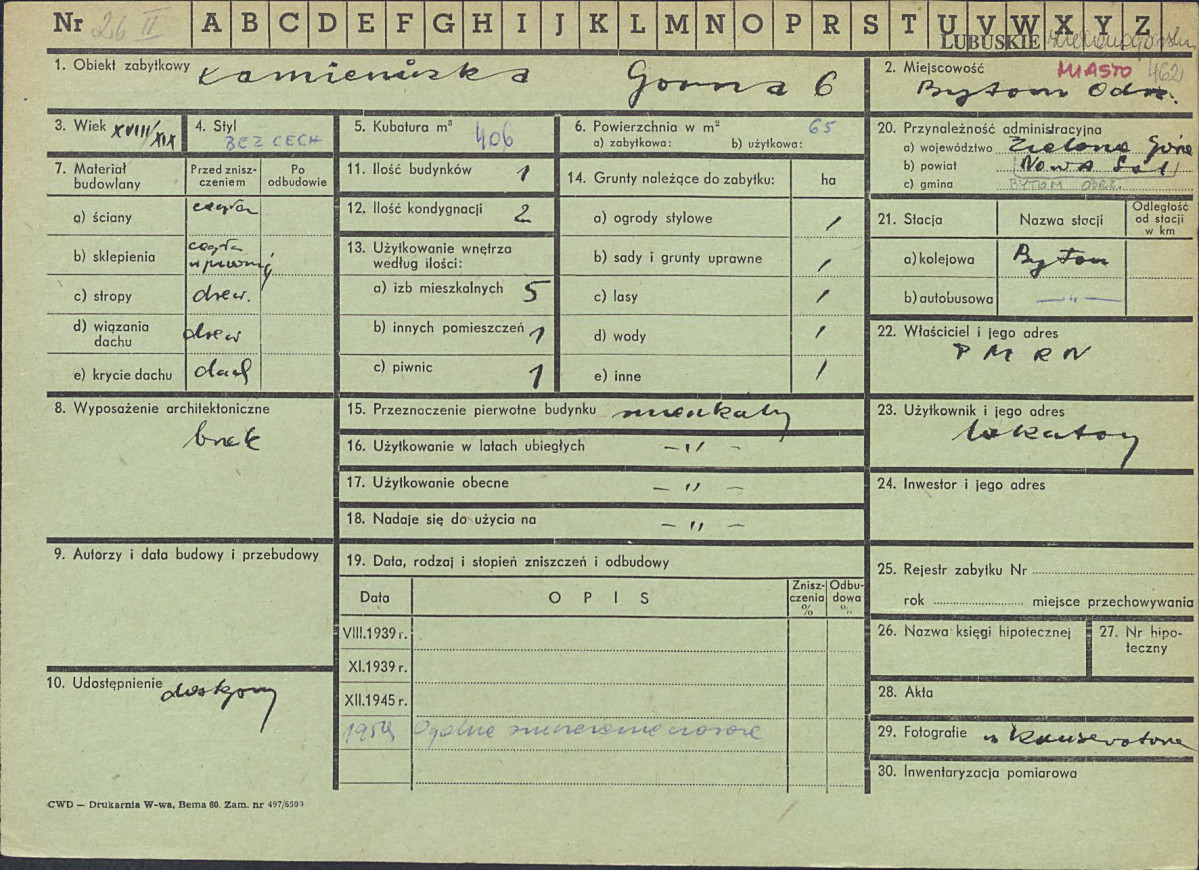 Nr 26 II A B C D E F G H I J K L M N O P R S T U V W X Y Z
LUBUSKIE
1. Obiekt zabytkowy Kamieniczka Górna 6
2. Miejscowość MIASTO 462
Bytom Odrz.
3. Wiek XVIII/XIX
4. Styl
BEZ CECH
5. Kubatura m³ 406
6. Powierzchnia w m² 65
a) zabytkowa: b) użytkowa:
7. Materiał budowlany
Przed zniszczeniem
Po odbudowie
a) ściany cegła
b) sklepienia cegła
c) stropy drew.
d) wiązania dachu drew
e) krycie dachu dach
8. Wyposażenie architektoniczne
brak
9. Autorzy i data budowy i przebudowy
10. Udostępnienie dostępny
11. Ilość budynków 1
12. Ilość kondygnacji 2
13. Użytkowanie wnętrza według ilości:
a) izb mieszkalnych 5
b) innych pomieszczeń 1
c) piwnic 1
14. Grunty należące do zabytku: ha
a) ogrody stylowe /
b) sady i grunty uprawne /
c) lasy /
d) wody /
e) inne /
15. Przeznaczenie pierwotne budynku mieszkalny
16. Użytkowanie w latach ubiegłych – " –
17. Użytkowanie obecne – " –
18. Nadaje się do użycia na – " –
19. Data, rodzaj i stopień zniszczeń i odbudowy
Data OPIS Zniszczenia % Odbudowa %
VIII.1939 r.
XI.1939 r.
XII.1945 r.
1954 Ogólne
20. Przynależność administracyjna
a) województwo Zielona Góra
b) powiat Nowa Sól
c) gmina BYTOM ODRZ.
21. Stacja Nazwa stacji Odległość od stacji w km
a) kolejowa Bytom
b) autobusowa – " –
22. Właściciel i jego adres
P M R N
23. Użytkownik i jego adres
lokatorzy
24. Inwestor i jego adres
25. Rejestr zabytku Nr
rok miejsce przechowywania
26. Nazwa księgi hipotecznej
27. Nr hipoteczny
28. Akta
29. Fotografie u konserwatora
30. Inwentaryzacja pomiarowa
CWD — Drukarnia W-wa, Bema 60. Zam. nr 497/6500